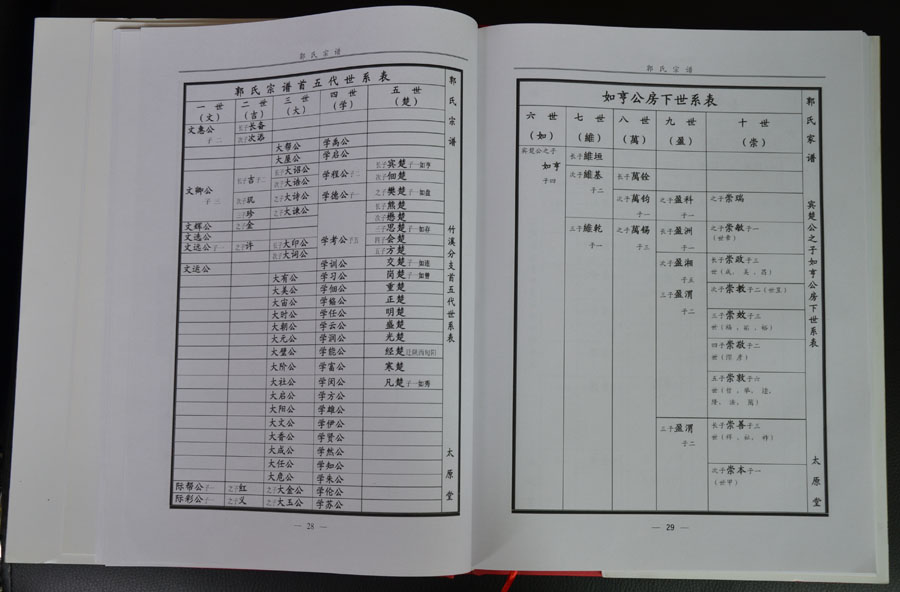 郭氏宗谱
郭氏宗谱首五代世系表
一世 二世 三世 四世 五世
(文) (吉) (大) (学) (楚)
文惠公 子二 长子长备
次子次添
大帮公 学禹公
大屋公 学启公
文卿公 子三 长子吉 子二 长子大诏公 学程公 子二 长子宾楚 子一如亨
次子大诰公 次子佃楚
次子玑 之子大诗公 学德公 子一 之子樊楚 子一如盘
三子珍 之子大谏公 长子熊楚
文辉公 之子金 次子懋楚
文选公 学考公 子五 三子思楚 子一如存
文远公 子一 之子许 长子大印公 四子会楚
次子大词公 五子方楚
文运公 学训公 交楚 子一如连
大有公 学习公 岗楚 子一如曾
大美公 学佃公 重楚
大宙公 学临公 正楚
大时公 学任公 明楚
大朝公 学云公 盛楚
大元公 学润公 光楚
大璧公 学能公 经楚 迁陕西旬阳
大阶公 学富公 寒楚
大社公 学闵公 凡楚 子一如秀
大启公 学方公
大阳公 学雄公
大文公 学伊公
大香公 学贤公
大成公 学然公
大任公 学知公
大危公 学朱公
际帮公 子一 之子红 之子大金公 学伦公
际彩公 子一 之子义 之子大玉公 学苏公
郭氏宗谱
竹溪分支首五代世系表
太原堂
— 28 —
郭氏宗谱
如亨公房下世系表
六世 七世 八世 九世 十世
(如) (維) (萬) (盈) (崇)
宾楚公之子 如亨 子四 长子維垣
次子維基 子二 长子萬铨
次子萬钧 子一 之子盈科 子一 之子崇瑞
三子維乾 子一 之子萬锡 子三 长子盈洲 子一 之子崇敏 子一
次子盈湘 子五 长子崇政 子三
世(成、吴、昌)
三子盈渭 子二 次子崇教 子二
三子崇效 子三
四子崇敬 子二
五子崇敦 子六
三子盈渭 子二 长子崇善 子三
次子崇本 子一
(世甲)
郭氏家谱
宾楚公之子如亨公房下世系表
太原堂
— 29 —